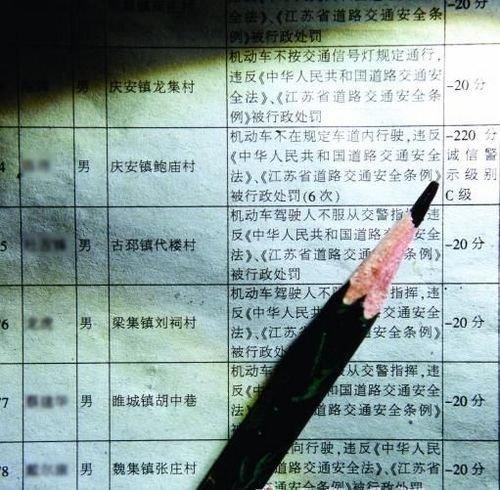 -20分
全法》、《江苏省道路交通安全条
例》被行政处罚
男
庆安镇龙集村
机动车不按交通信号灯规定通行,
违反《中华人民共和国道路交通安
全法》、《江苏省道路交通安全条
例》被行政处罚
-20分
4
男
庆安镇鲍庙村
机动车不在规定车道内行驶,违反
《中华人民共和国道路交通安全
法》、《江苏省道路交通安全条例》
被行政处罚(6次)
-220分
诚信警
示级别
C级
5
男
古邳镇代楼村
机动车驾驶人不服从交警指挥,违
反《中华人民共和国道路交通安
全法》、《江苏省道路交通安
被行政处罚
-20分
76
男
梁集镇刘祠村
机动车驾驶人不服 指挥,违
反《中华人民共和国 道路交通安全
法》、《江苏省 道路交通安全条例》
被行政处
-20分
77
男
睢城镇胡中巷
机动车驾驶 从交警指挥,违
反《中 民共和国道路交通安全
法》 苏省道路交通安全条例》
被行
-20分
78
男
魏集镇张庄村
向行驶,违反《中华人民
道路交通安全法》、《江苏省
通安全条例》被行政处罚
-20分